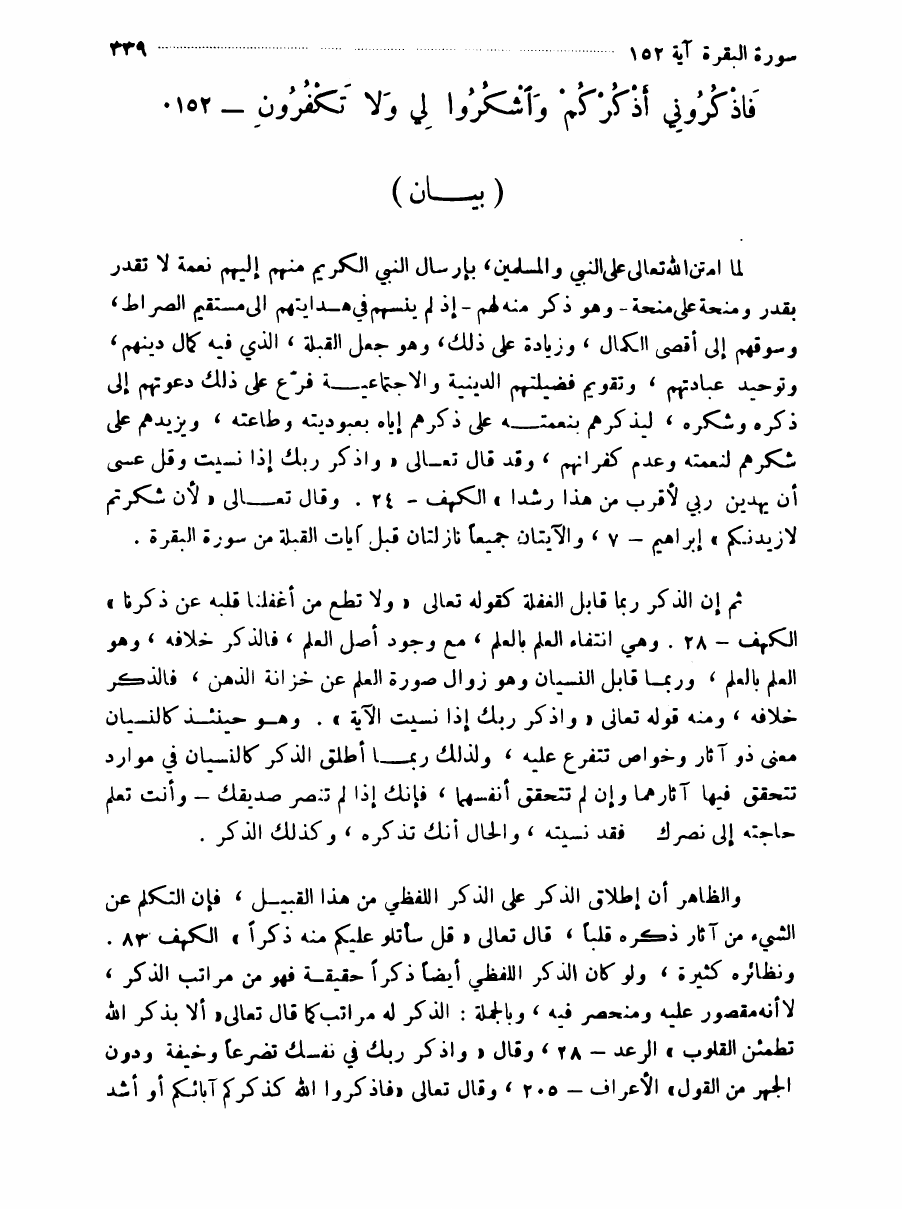 سورة البقرة آية ١٥٢ ٣٣٩
فَاذْكُرُونِي أَذْكُرْكُمْ وَٱشْكُرُوا لِي وَلَا تَكْفُرُونِ ــ ١٥٢٠
( بيــــان )
لما امتن الله تعالى على النبي والمسلمين، بإرسال النبي الكريم منهم إليهم نعمة لا تقدر
بقدر ومنحة على منحة - وهو ذكر منه لهم - إذ لم ينسهم في هدايتهم الى مستقيم الصراط،
وسوقهم إلى أقصى الكمال ، وزيادة على ذلك، وهو جعل القبلة ، الذي فيه كمال دينهم،
وتوحيد عبادتهم ، وتقويم فضيلتهم الدينية والاجتماعيــة فرّع على ذلك دعوتهم إلى
ذكره وشكره ، ليذكرهم بنعمتــه على ذكرهم إياه بعبوديته وطاعته ، ويزيدهم على
شكرهم لنعمته وعدم كفرانهم ، وقد قال تعـالى « واذكر ربك إذا نسيت وقل عسى
أن يهدين ربي لأقرب من هذا رشدا » الكهف - ٢٤ . وقال تعــالى « لأن شكرتم
لازيدنكم » إبراهيم – ٧ ، والآيتان جميعاً نازلتان قبل آيات القبلة من سورة البقرة .
ثم إن الذكر ربما قابل الغفلة كقوله تعالى « ولا تطع من أغفلنا قلبه عن ذكرنا »
الكهف – ٢٨ . وهي انتفاء العلم بالعلم ، مع وجود أصل العلم ، فالذكر خلافه ، وهو
العلم بالعلم ، وربمـا قابل النسيان وهو زوال صورة العلم عن خزانة الذهن ، فالذكر
خلافه ، ومنه قوله تعالى « واذكر ربك إذا نسيت الآية » . وهـو حينئـذ كالنسيان
معنى ذو آثار وخواص تتفرع عليه ، ولذلك ربمــا أطلق الذكر كالنسيان في موارد
تتحقق فيها آثارهما وإن لم تتحقق أنفسهما ، فإنك إذا لم تنصر صديقك – وأنت تعلم
حاجته إلى نصرك فقد نسيته ، والحال أنك تذكره ، وكذلك الذكر .
والظاهر أن إطلاق الذكر على الذكر اللفظي من هذا القبيـل ، فإن التكلم عن
الشيء من آثار ذكره قلباً ، قال تعالى « قل سأتلو عليكم منه ذكراً » الكهف ٨٣ .
ونظائره كثيرة ، ولو كان الذكر اللفظي أيضاً ذكراً حقيقـة فهو من مراتب الذكر ،
لا أنه مقصور عليه ومنحصر فيه ، وبالجملة : الذكر له مراتب كما قال تعالى « ألا بذكر الله
تطمئن القلوب » الرعد – ٢٨ ، وقال « واذكر ربك في نفسك تضرعاً وخيفة ودون
الجهر من القول» الأعراف – ٢٠٥ ، وقال تعالى «فاذكروا الله كذكركم آبائكم أو أشد